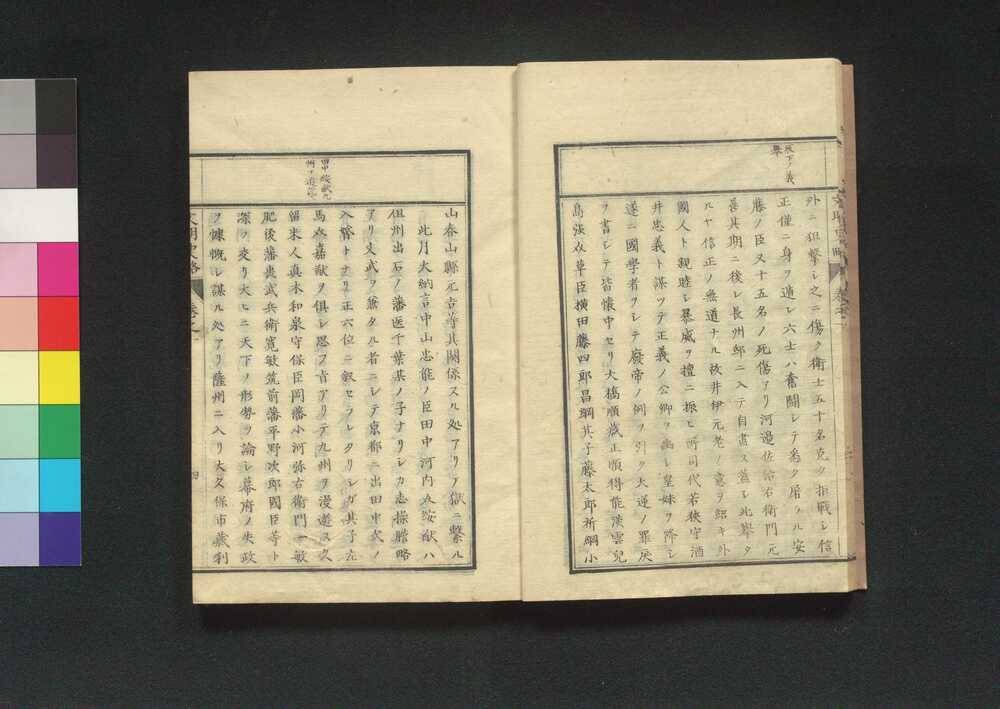 坂下ノ義
擧
外ニ狙撃シ之ニ傷ク衛士五十名克ク拒戰シ信
正僅ニ身ヲ遁レ六士ハ奮鬪シテ悉ク屠ラル安
藤ノ臣又十五名ノ死傷アリ河邉佐治右衛門元
善其期ニ後レ長州邸ニ入テ自盡ス蓋シ此擧タ
ルヤ信正ノ無道ナル故井伊元老ノ意ヲ紹キ外
國人ト親睦シ暴威ヲ擅ニ振ヒ所司代若狭守酒
井忠義ト謀ツテ正義ノ公卿ヲ幽シ皇妹ヲ降シ
遂ニ國學者ヲシテ廢帝ノ例ヲ引ク大逆ノ罪戻
ヲ書シテ皆懐中セリ大橋順蔵正順得能淡雲兒
島強介草臣横田藤四郎昌綱其子藤太郎祈綱小
山春山縣元吉等其關係スル処アリテ獄ニ繋ル
此月大納言中山忠能ノ臣田中河内介綏猷ハ
但州出石ノ藩医千葉某ノ子ナリシカ志操膽略
アリ文武ヲ兼タル者ニシテ京都ニ出田中氏ノ
入婿トナリ正六位ニ叙セラレタリシガ其子左
馬介嘉猷ヲ俱シ思フ旨アリテ九州ヲ漫遊ス久
留米人真木和泉守保臣岡藩小河弥右衛門一敏
肥後藩轟武兵衛寛敏筑前藩平野次郎國臣等ト
深ク交リ大ヒニ天下ノ形勢ヲ論シ幕府ノ失政
ヲ慷慨シ謀ル処アリ薩州ニ入リ大久保市蔵利
四